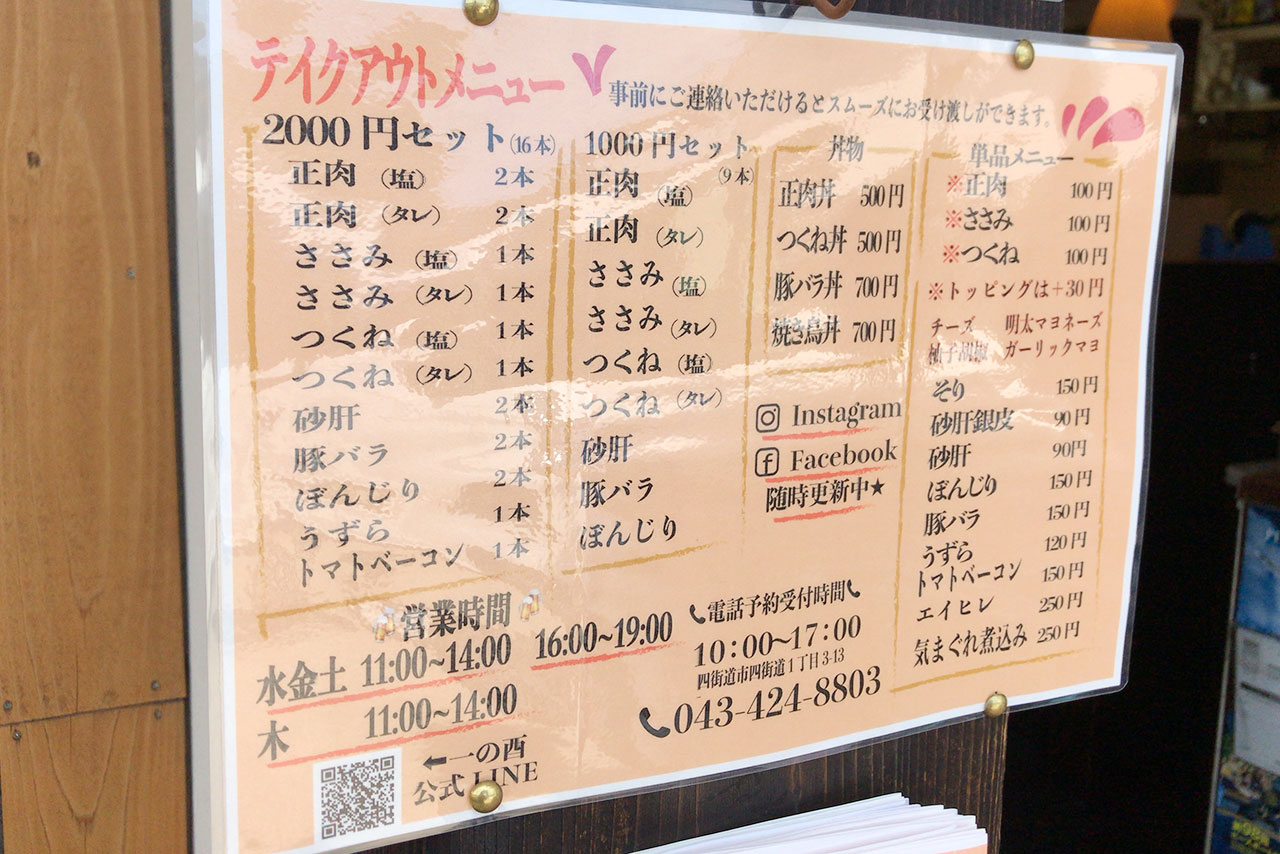 テイクアウトメニュー
事前にご連絡いただけるとスムーズにお受け渡しができます。
2000円セット(16本)
正肉 (塩) 2本
正肉 (タレ) 2本
ささみ (塩) 1本
ささみ (タレ) 1本
つくね (塩) 1本
つくね (タレ) 1本
砂肝 2本
豚バラ 2本
ぼんじり 2本
うずら 1本
トマトベーコン 1本
1000円セット
(9本)
正肉 (塩)
正肉 (タレ)
ささみ (塩)
ささみ (タレ)
つくね (塩)
つくね (タレ)
砂肝
豚バラ
ぼんじり
丼物
正肉丼 500円
つくね丼 500円
豚バラ丼 700円
焼き鳥丼 700円
Instagram
Facebook
随時更新中★
単品メニュー
※正肉 100円
※ささみ 100円
※つくね 100円
※トッピングは+30円
チーズ 明太マヨネーズ
柚子胡椒 ガーリックマヨ
そり 150円
砂肝銀皮 90円
砂肝 90円
ぼんじり 150円
豚バラ 150円
うずら 120円
トマトベーコン 150円
エイヒレ 250円
気まぐれ煮込み 250円
営業時間
水金土 11:00~14:00 16:00~19:00
木 11:00~14:00
電話予約受付時間
10:00~17:00
四街道市四街道1丁目3-13
043-424-8803
←一の酉
公式LINE